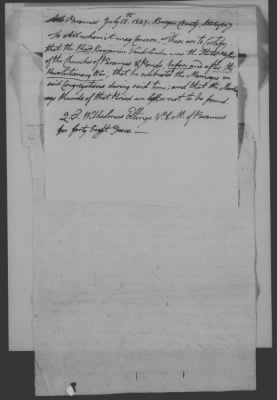 Paramus July 18th 1847. Bergen County
To All whom it may concern, These are to certify
that the Revd Benjamin Vanderlinde was the
of the Churches of Paramus & Ponds, before and after the
Revolutionary War; that he celebrated the Marriages in
said Congregations during said time; and that the Marri-
age Records of that Period are not to be found.
Wilhelmus Eltinge V.D.M. of Paramus
for forty Eight Years —